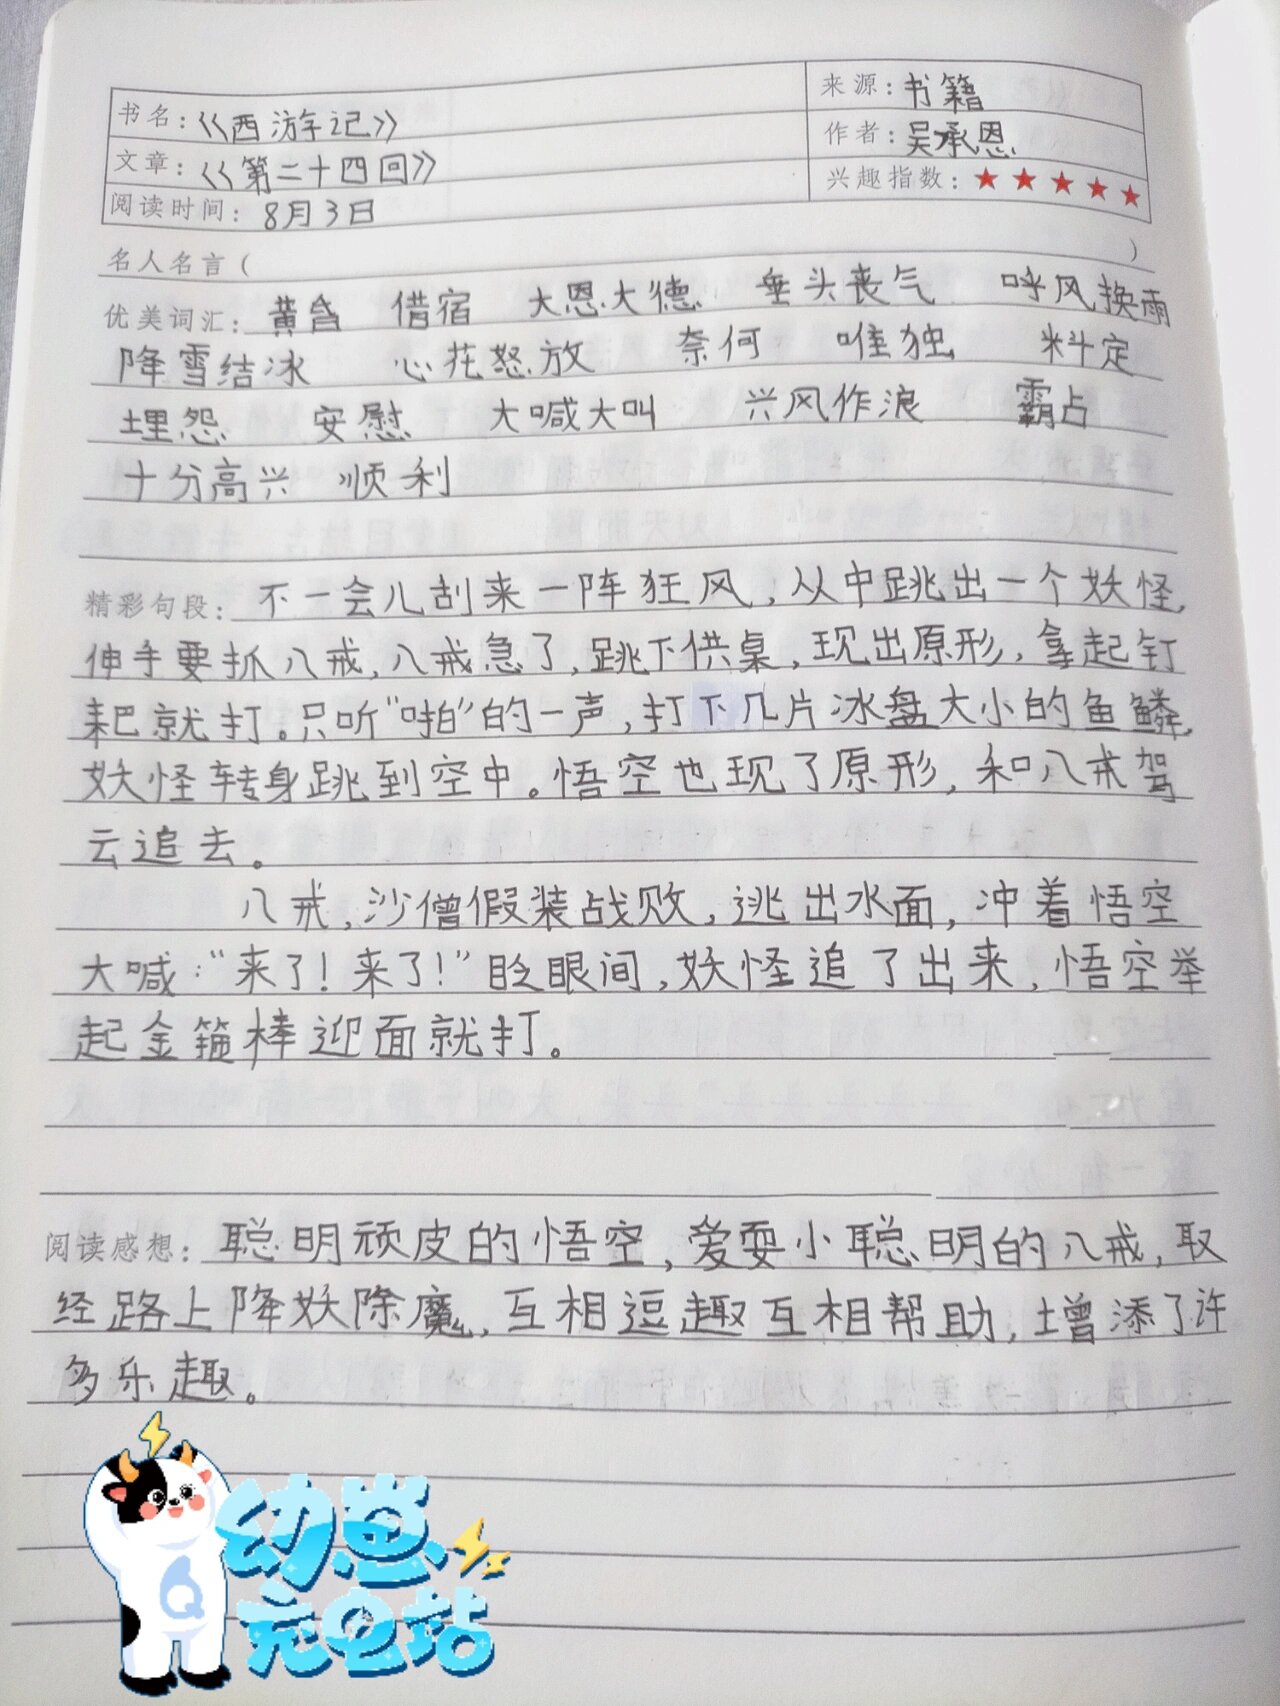 书名：《西游记》
来源：书籍
文章：《第二十四回》
作者：吴承恩
阅读时间：8月3日
兴趣指数：★★★★★
名人名言（ ）
优美词汇：黄昏 借宿 大恩大德 垂头丧气 呼风换雨
降雪结冰 心花怒放 奈何 唯独 料定
埋怨 安慰 大喊大叫 兴风作浪 霸占
十分高兴 顺利
精彩句段：不一会儿刮来一阵狂风，从中跳出一个妖怪，
伸手要抓八戒，八戒急了，跳下供桌，现出原形，拿起钉
耙就打。只听“啪”的一声，打下几片冰盘大小的鱼鳞，
妖怪转身跳到空中。悟空也现了原形，和八戒驾
云追去。
八戒，沙僧假装战败，逃出水面，冲着悟空
大喊：“来了！来了！”眨眼间，妖怪追了出来，悟空举
起金箍棒迎面就打。
阅读感想：聪明顽皮的悟空，爱耍小聪明的八戒，取
经路上降妖除魔，互相逗趣互相帮助，增添了许
多乐趣。
幼崽
充电站